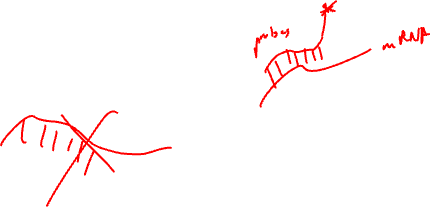 probes
mRNA